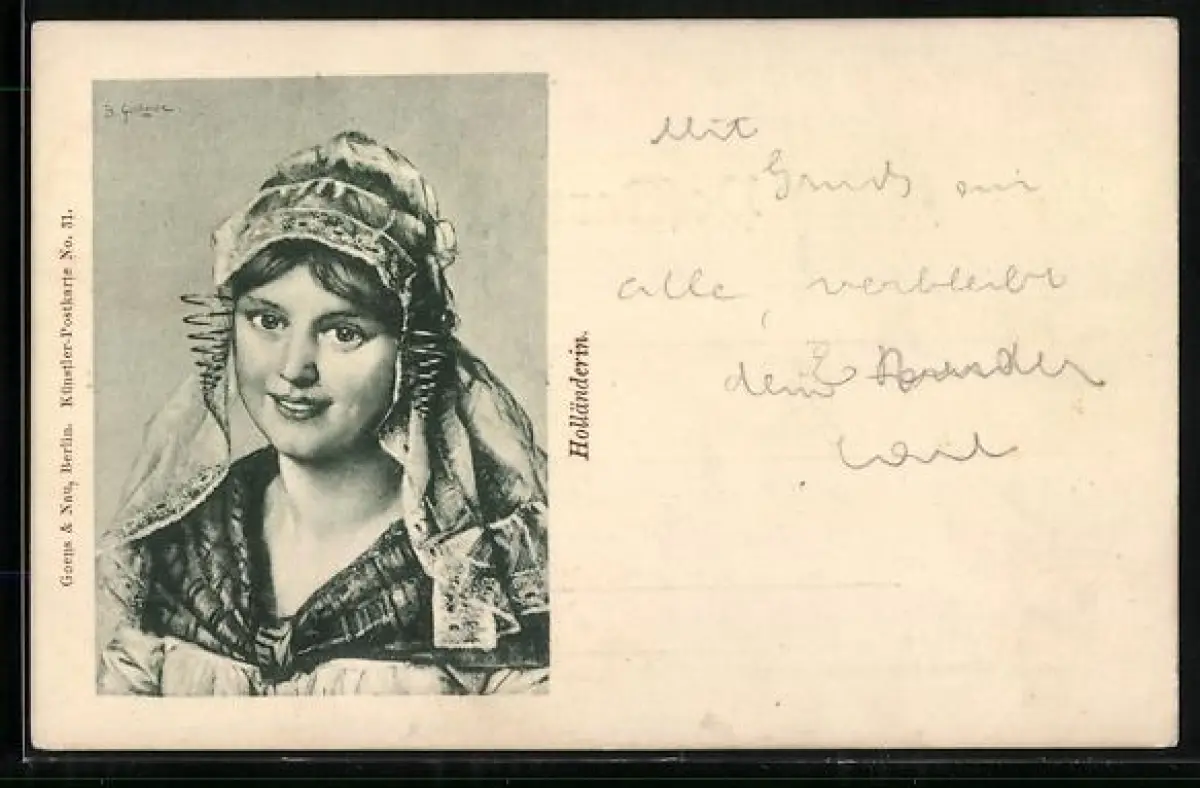 Goens & Nau, Berlin. Künstler-Postkarte No. 31.
Holländerin.
Mit
Gruss
alle verbleibe
dein Bruder